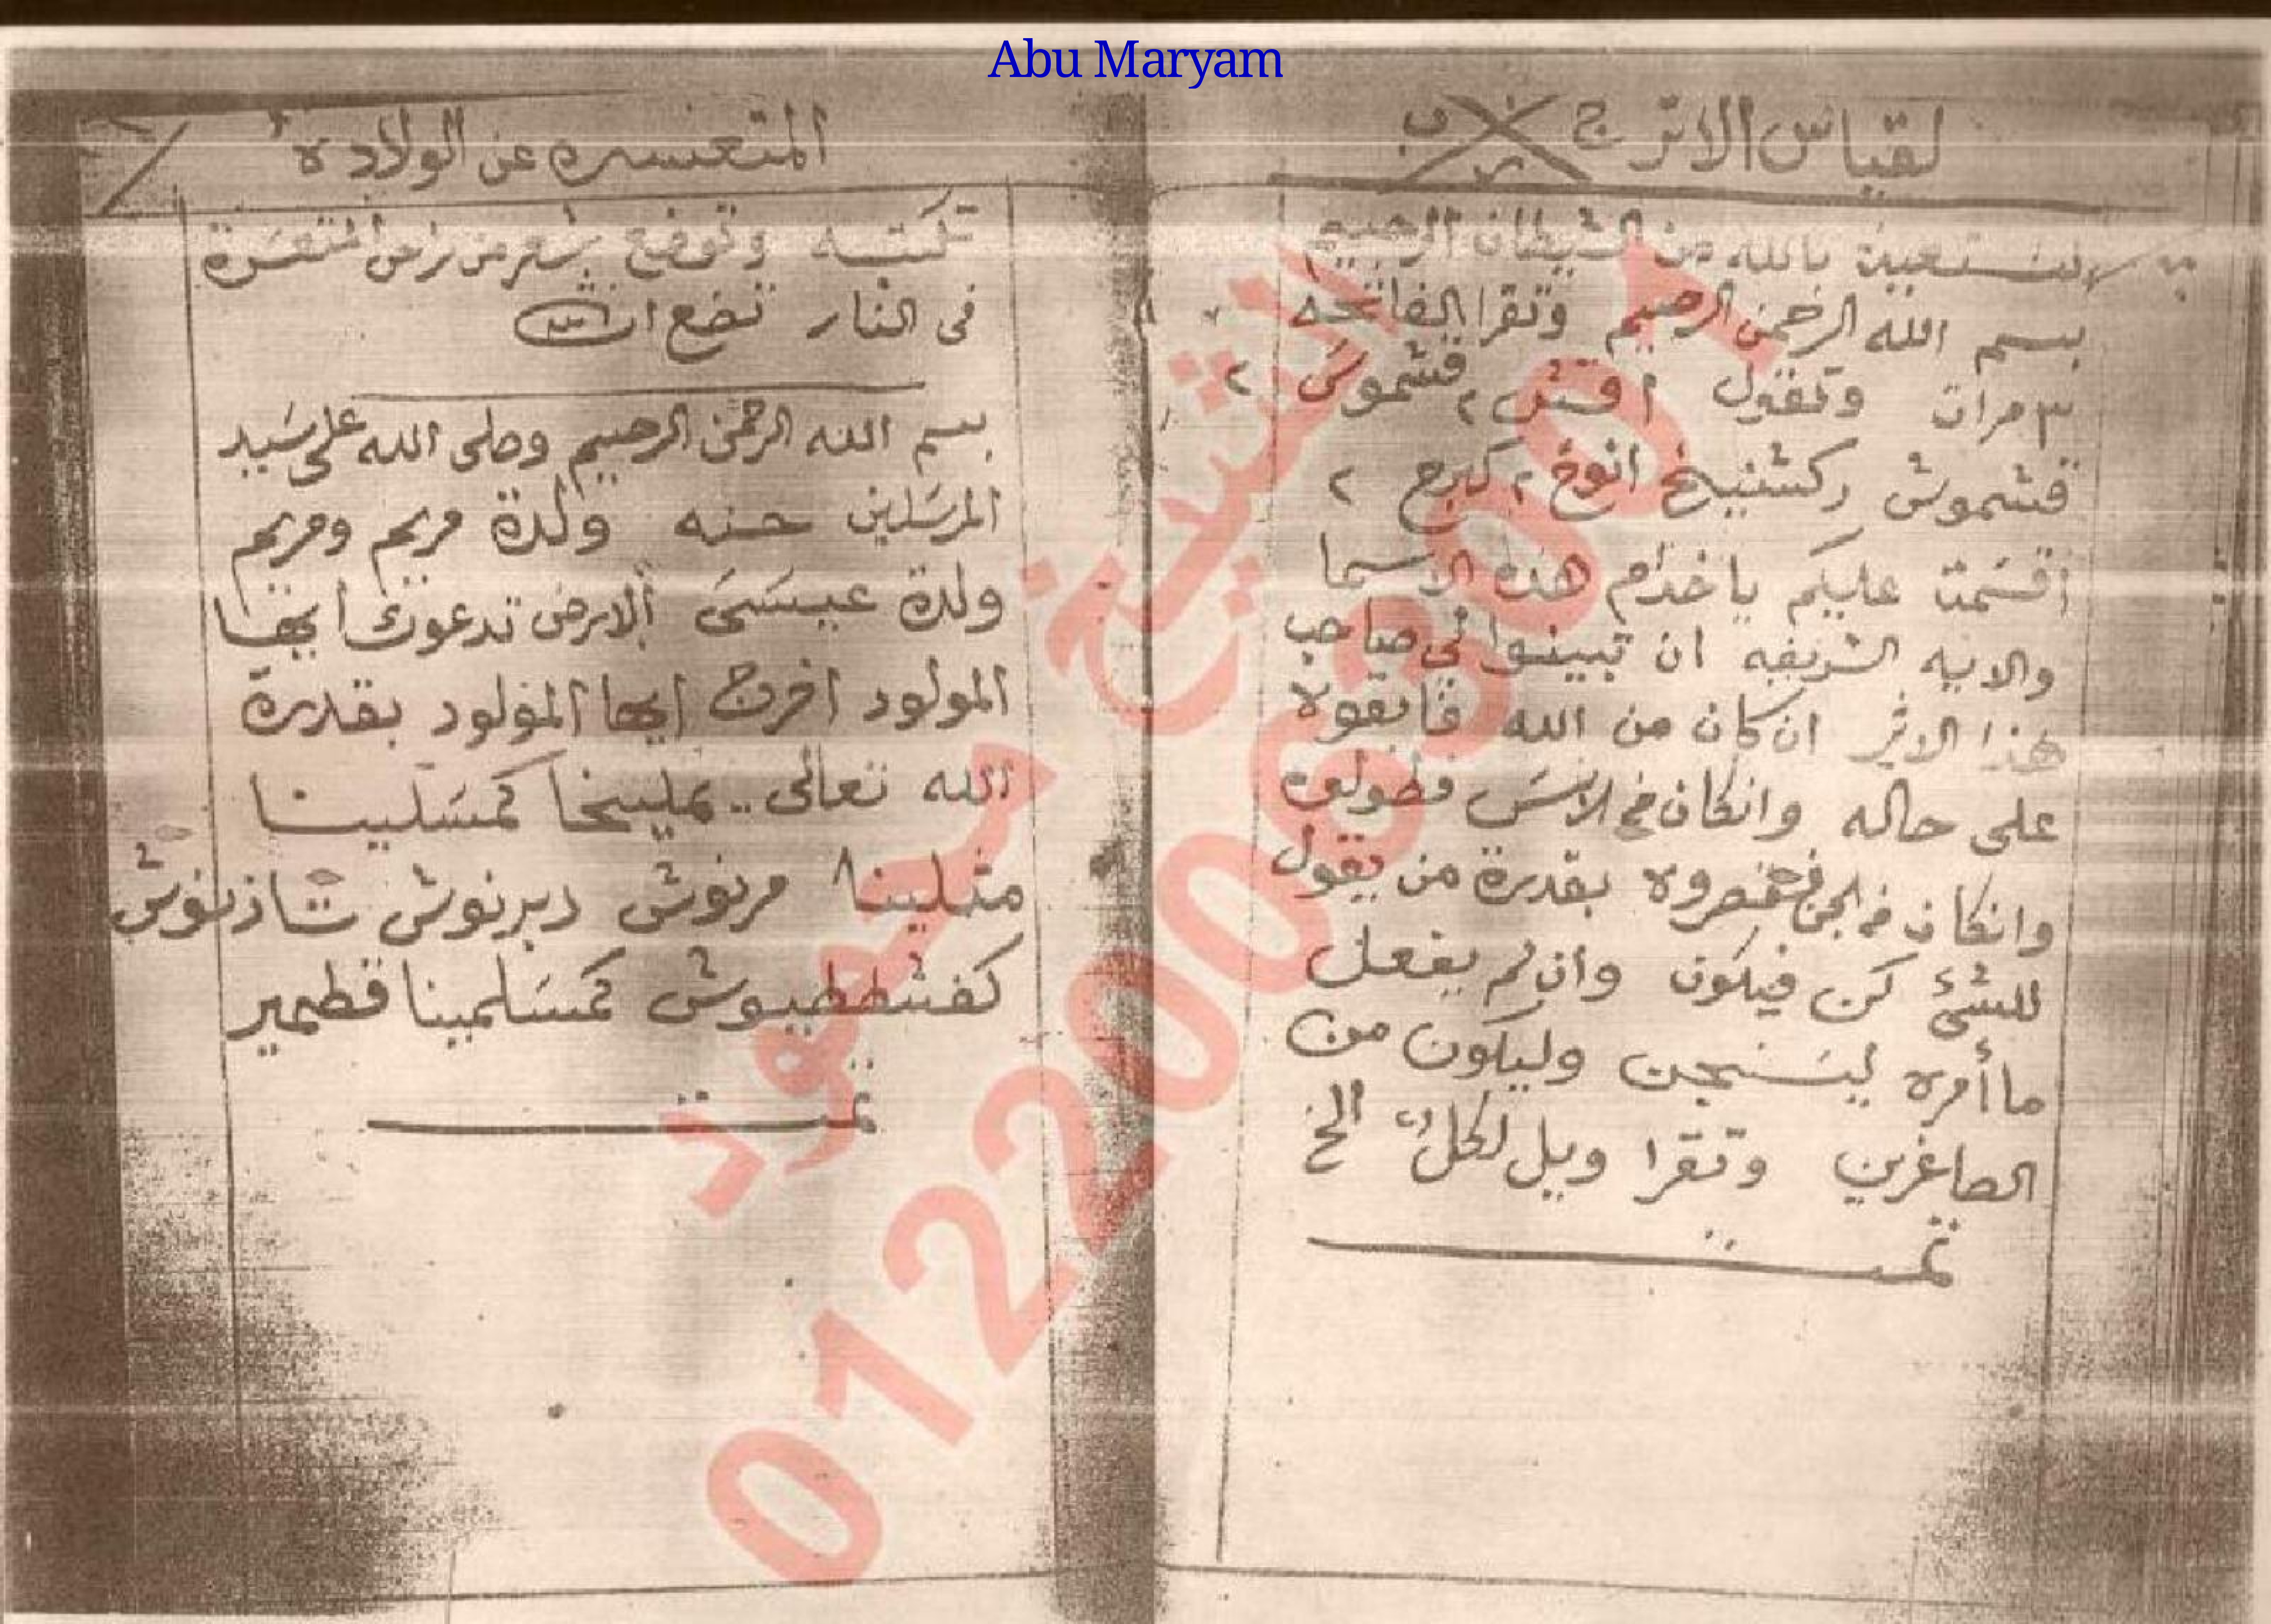 Abu Maryam
لقياس الاتر ج
نستعيذ بالله من الشيطان الرجيم
بسم الله الرحمن الرحيم وتقرا الفاتحه
٣ مرات وتقول اقش ٢ قشموش ٢
قشموش ركشنيخ انوخ ٢ كبرح ٢
أقسمت عليكم يا خدام هذه الاسما
والايه الشريفه ان تبينوا لي صاحب
هذا الاثر ان كان من الله فابقوه
على حاله وانكان من الانس فطولوه
وانكان من الجن فقصروه بقدرة من يقول
للشئ كن فيكون وان لم يفعل
ما أمره ليسجنن وليكون من
الصاغرين وتقرا ويل لكل الخ
تمت
المتعسره عن الولاده
تكتبه وتوضع بشعر من راس المتعسرة
فى النار تضع ان شاء الله
بسم الله الرحمن الرحيم وصلى الله على سيد
المرسلين حنه ولدة مريم ومريم
ولدة عيسى الارض تدعوك أيها
المولود اخرج ايها المولود بقدرة
الله تعالى .. يمليخا كمسلينا
مثلينا مرنوش دبرنوش شاذنوش
كفشططيوش كمسلمينا قطمير
تمت
الشيخ محمود
01220063001